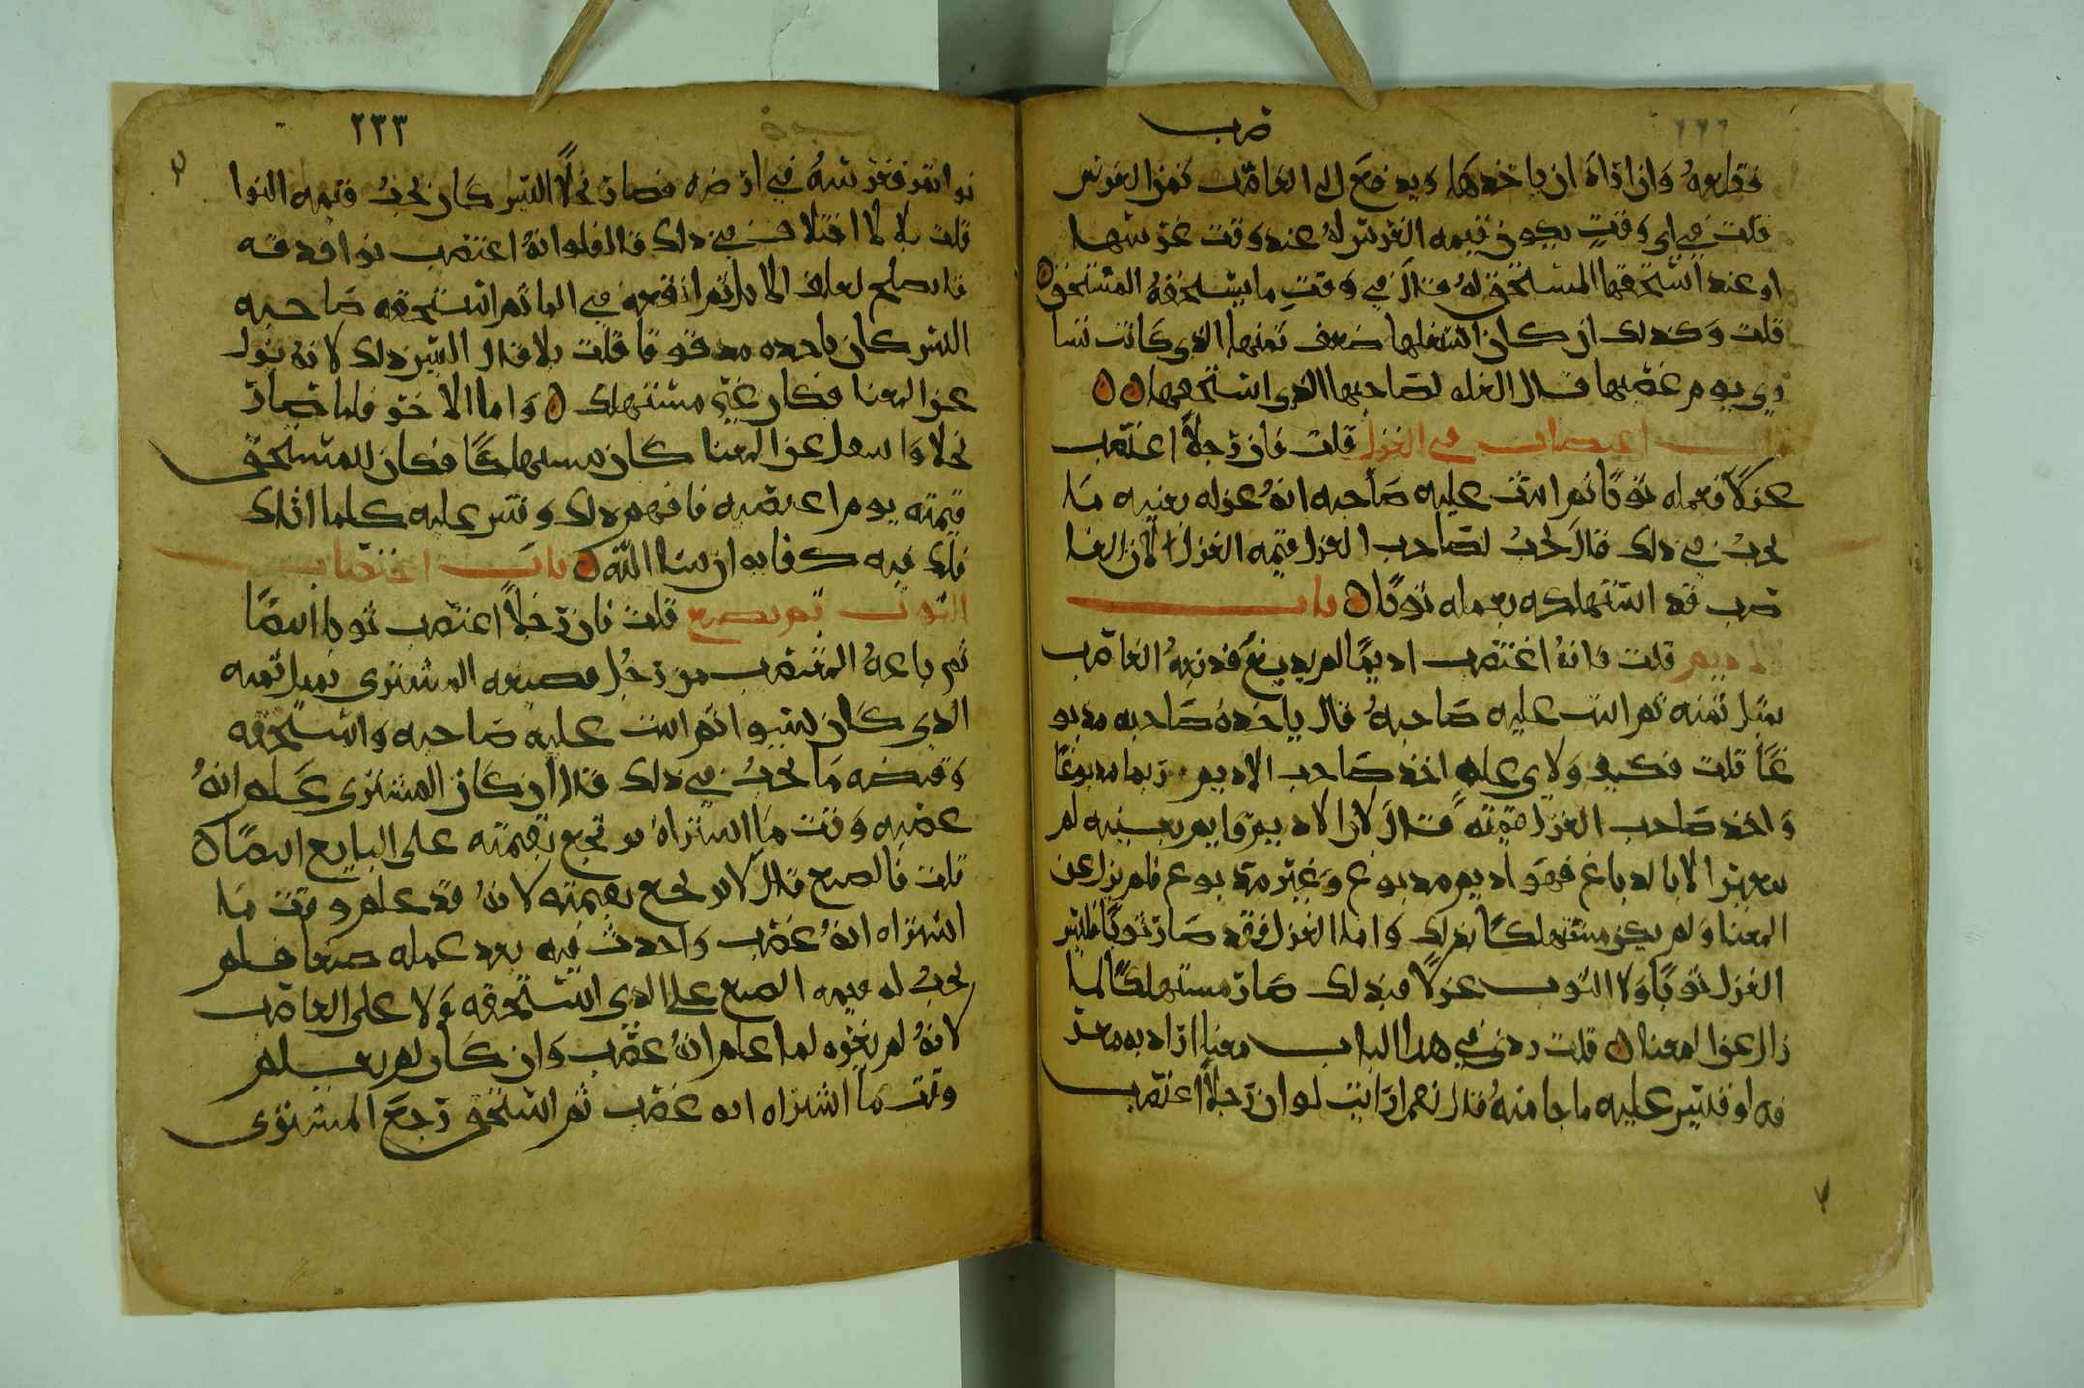 ضرب
فقلعه وان اراد ان ياخذها ويدفع الى الغاصب ثمن الغرس
قلت في اي وقت يكون قيمه الغرس له عند وقت غرسها
او عند استحقها المستحق له قال في وقت ما يستحقه المستحق
قلت وكذلك ان كان استغلها ضعف ثمنها الذي كانت تسا
وي يوم غصبها قال الغله لصاحبها الذي استحقها
باب اغتصاب في الغزل قلت فان رجلا اغتصب
غزلا فعمله ثوبا ثم اثبت عليه صاحبه انه غزله بعينه ما
يجب في ذلك قال يجب لصاحب الغزل قيمه الغزل لان الغا
ضرب قد استهلكه بعمله ثوبا باب
اديم قلت فانه اغتصب اديما لم يدبغ فدبغه الغاصب
بمثل ثمنه ثم اثبت عليه صاحبه قال ياخذه صاحبه مدبو
غا قلت فكيف ولاي عله اخذ صاحب الاديم اديما مدبوغا
واخذ صاحب الغزل قيمته قال لان الاديم قايم بعينه لم
يتغير الا بالدباغ فهو اديم مدبوغ وغير مدبوغ فلم يزل عن
المعنا ولم يكن مستهلكا بذلك واما الغزل فقد صار ثوبا فليس
الغزل ثوبا ولا الثوب غزلا فبذلك صار مستهلكا لما
زال عن المعنا قلت زدني في هذا الباب معنا ازداد به معر
فه او قيس عليه ما جا منه قال نعم ارايت لو ان رجلا اغتصب
٢٣٣
نوا تمر فغرسه في ارضه فصار نخلا اليس كان يجب قيمه النوا
قلت بلا لا اختلاف في ذلك قال فلو انه اغتصب نوا فدقه
ما يصلح لعلف الابل ثم انقعه في الما ثم استحقه صاحبه
اليس كان ياخذه مدقوقا قلت بلا قال اليس ذلك لانه يزل
عن المعنا فكان غير مستهلك واما الاخر فلما صار
نخلا وانتقل عن المعنا كان مستهلكا فكان للمستحق
قيمته يوم اغتصبه فافهم ذلك وقس عليه كلما اتاك
فلك فيه كفايه ان شا الله باب اغتصاب
الثوب ثم يصبغ قلت فان رجلا اغتصب ثوبا ايضا
ثم باعه المغتصب من رجل فصبغه المشتري بمثل ثمنه
الذي كان اشتراه ثم اثبت عليه صاحبه واستحقه
وقبضه ما يجب في ذلك قال ان كان المشتري علم انه
غصبه وقت ما اشتراه لم يرجع بقيمته على البايع ايضا
قلت فالصبغ قال لا يرجع بقيمته لانه قد علم وقت ما
اشتراه انه غصب واحدث فيه بعد علمه صبغا فلم
يجب له قيمه الصبغ على الذي استحقه ولا على الغاصب
لانه لم يغره لما علم انه غصب وان كان لم يعلم
وقت ما اشتراه انه غصب ثم استحق رجع المشتري